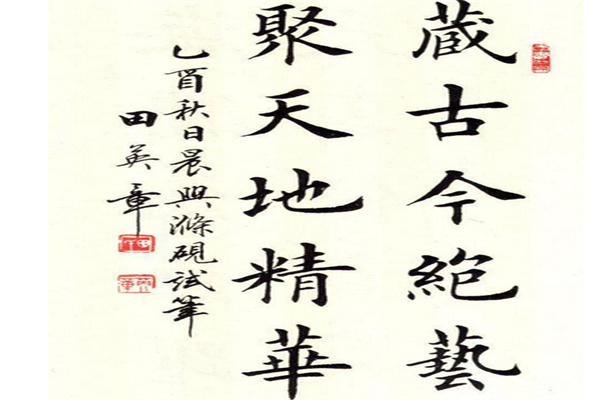 蔵古今絶藝
聚天地精華
乙酉秋日晨興滌硯試筆
田英章